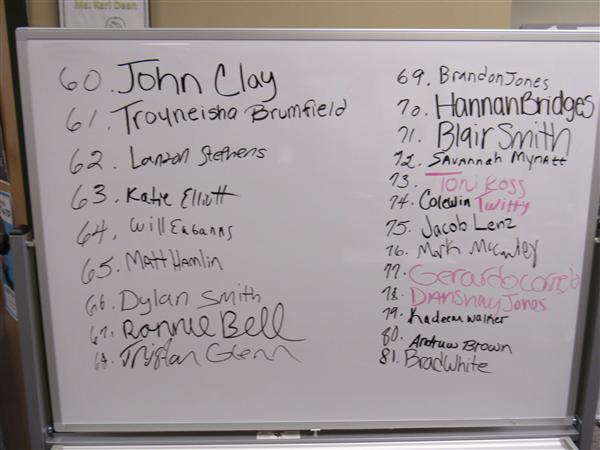 Ms. Kari Dean
60. John Clay
61. Troyneisha Brumfield
62. Landon Stephens
63. Katie Elliott
64. Will Eubanks
65. Matt Hamlin
66. Dylan Smith
67. Ronnie Bell
68. Tristan Glenn
69. Brandon Jones
70. Hannah Bridges
71. Blair Smith
72. Savannah Mynatt
73. Toni Ross
74. Colewin Twitty
75. Jacob Lenz
76. Mark McCauley
77. Gerardo Cornejo
78. Dianshay Jones
79. Kadeem Walker
80. Andrew Brown
81. Brad White